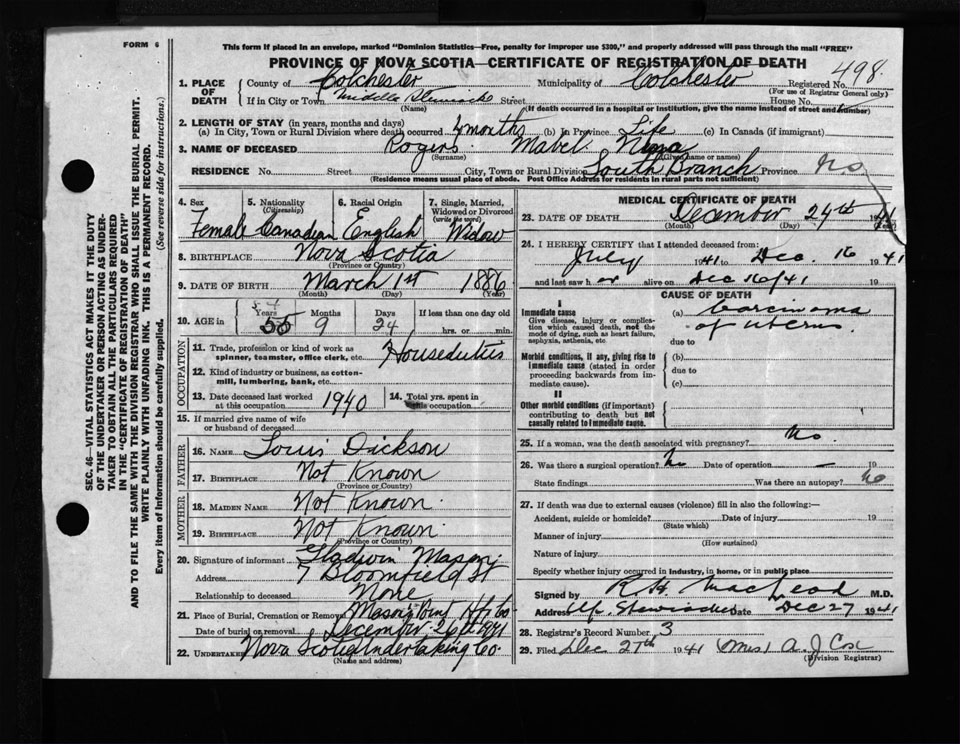 FORM 6
This form if placed in an envelope, marked "Dominion Statistics—Free, penalty for improper use $300," and properly addressed will pass through the mail "FREE"
PROVINCE OF NOVA SCOTIA—CERTIFICATE OF REGISTRATION OF DEATH
498
1. PLACE OF DEATH County of Colchester Municipality of Colchester Registered No.
(For use of Registrar General only)
If in City or Town Middle Stewiacke Street House No.
(Name) (If death occurred in a hospital or institution, give the name instead of street and number)
2. LENGTH OF STAY (in years, months and days)
(a) In City, Town or Rural Division where death occurred 4 months (b) In Province Life (c) In Canada (if immigrant)
3. NAME OF DECEASED Rogers Mabel Nina
(Surname) (Given name or names)
RESIDENCE No. Street City, Town or Rural Division South Branch Province N.S.
(Residence means usual place of abode. Post Office Address for residents in rural parts not sufficient)
4. Sex Female
5. Nationality (Citizenship) Canadian
6. Racial Origin English
7. Single, Married, Widowed or Divorced (write the word) Widow
8. BIRTHPLACE Nova Scotia
(Province or Country)
9. DATE OF BIRTH March 1st 1886
(Month) (Day) (Year)
54
10. AGE in Years 55 Months 9 Days 24 If less than one day old
hrs. or min.
OCCUPATION
11. Trade, profession or kind of work as spinner, teamster, office clerk, etc. Houseduties
12. Kind of industry or business, as cotton-mill, lumbering, bank, etc.
13. Date deceased last worked at this occupation 1940
14. Total yrs. spent in this occupation
15. If married give name of wife or husband of deceased
FATHER
16. NAME Louis Dickson
17. BIRTHPLACE Not Known
(Province or Country)
MOTHER
18. MAIDEN NAME Not Known
19. BIRTHPLACE Not Known
(Province or Country)
20. Signature of informant Gladwin Mason
Address 7 Bloomfield St
Relationship to deceased None
21. Place of Burial, Cremation or Removal Masons Point Hfx Co
Date of burial or removal December 26th 1941
22. UNDERTAKER Nova Scotia Undertaking Co.
(Name and address)
MEDICAL CERTIFICATE OF DEATH
23. DATE OF DEATH December 24th 1941
(Month) (Day) (Year)
24. I HEREBY CERTIFY that I attended deceased from:
July 1941 to Dec. 16 1941
and last saw her alive on Dec 16/41
CAUSE OF DEATH
I
Immediate cause
Give disease, injury or complication which caused death, not the mode of dying, such as heart failure, asphyxia, asthenia, etc
(a) Carcinoma of uterus
due to
Morbid conditions, if any, giving rise to immediate cause (stated in order proceeding backwards from immediate cause).
(b)
due to
(c)
II
Other morbid conditions (if important) contributing to death but not causally related to immediate cause.
25. If a woman, was the death associated with pregnancy? No.
26. Was there a surgical operation? No Date of operation — 19
State findings Was there an autopsy? No
27. If death was due to external causes (violence) fill in also the following:—
Accident, suicide or homicide? Date of injury 19
(State which)
Manner of injury
(How sustained)
Nature of injury
Specify whether injury occurred in industry, in home, or in public place
Signed by R. H. MacLeod M.D.
Address Up. Stewiacke Date Dec 27 1941
28. Registrar's Record Number 3
29. Filed Dec 27th 1941 (Mrs) A. J Cox
(Division Registrar)
SEC. 46—VITAL STATISTICS ACT MAKES IT THE DUTY
OF THE UNDERTAKER OR PERSON ACTING AS UNDER-
TAKER TO OBTAIN ALL THE PARTICULARS REQUIRED
IN THE "CERTIFICATE OF REGISTRATION OF DEATH"
AND TO FILE THE SAME WITH THE DIVISION REGISTRAR WHO SHALL ISSUE THE BURIAL PERMIT.
WRITE PLAINLY WITH UNFADING INK. THIS IS A PERMANENT RECORD.
Every item of Information should be carefully supplied. (See reverse side for instructions.)